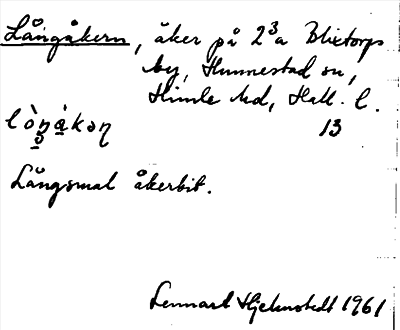 Långåkern, åker på 2³a Blixtorps
by, Hunnestad sn,
Himle hd, Hall. l.
13
Långsmal åkerbit.
Lennart Hjelmstedt 1961